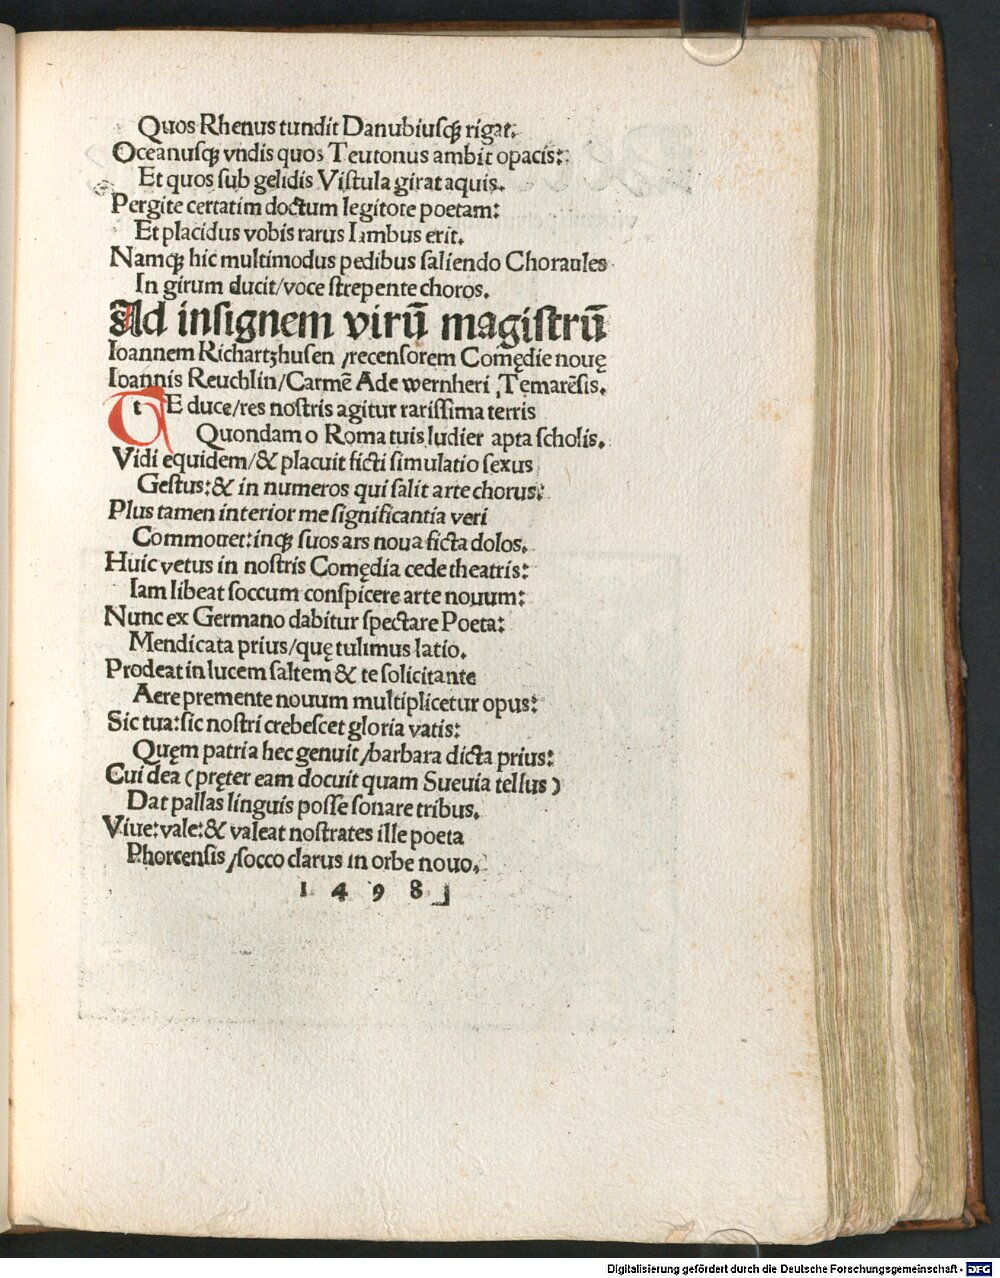 Quos Rhenus tundit Danubiusqꝫ rigat:
Oceanusqꝫ vndis quos Teutonus ambit opacis:
Et quos ſub gelidis Viſtula girat aquis.
Pergite certatim doctum legitote poetam:
Et placidus vobis rarus Iambus erit.
Namqꝫ hic multimodus pedibus ſaliendo Choraules
In girum ducit/voce ſtrepente choros.
Ad inſignem virū magiſtrū
Ioannem Richartzhuſen /recenſorem Comędie nouę
Ioannis Reuchlin/Carmē Ade wernheri Temarēſis.
tE duce/res noſtris agitur rariſſima terris
Quondam o Roma tuis ludier apta ſcholis.
Vidi equidem/& placuit ficti ſimulatio ſexus
Geſtus:& in numeros qui ſalit arte chorus:
Plus tamen interior me ſignificantia veri
Commouet:inqꝫ ſuos ars noua ficta dolos.
Huic vetus in noſtris Comędia cede theatris:
Iam libeat ſoccum conſpicere arte nouum:
Nunc ex Germano dabitur ſpectare Poeta:
Mendicata prius/quę tulimus latio.
Prodeat in lucem ſaltem & te ſolicitante
Aere premente nouum multiplicetur opus:
Sic tua:ſic noſtri crebeſcet gloria vatis:
Quęm patria hec genuit /barbara dicta prius:
Cui dea (pręter eam docuit quam Sueuia tellus)
Dat pallas linguis poſſe ſonare tribus.
Viue:vale:& valeat noſtrates ille poeta
Phorcenſis /ſocco clarus in orbe nouo.
1498
Digitalisierung gefördert durch die Deutsche Forschungsgemeinschaft - DFG